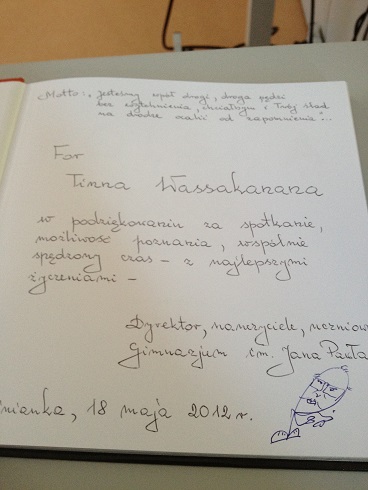 Motto: „Jesteśmy wpół drogi, droga pędzi
bez wytchnienia, chciałbym i Twój ślad
na drodze ocalić od zapomnienia"...
For
Timna Wassakanana
w podziękowaniu za spotkanie,
możliwość poznania, wspólnie
spędzony czas – z najlepszymi
życzeniami –
Dyrektor, nauczyciele, uczniow
Gimnazjum im. Jana Pawła
nianka, 18 maja 2012 r.